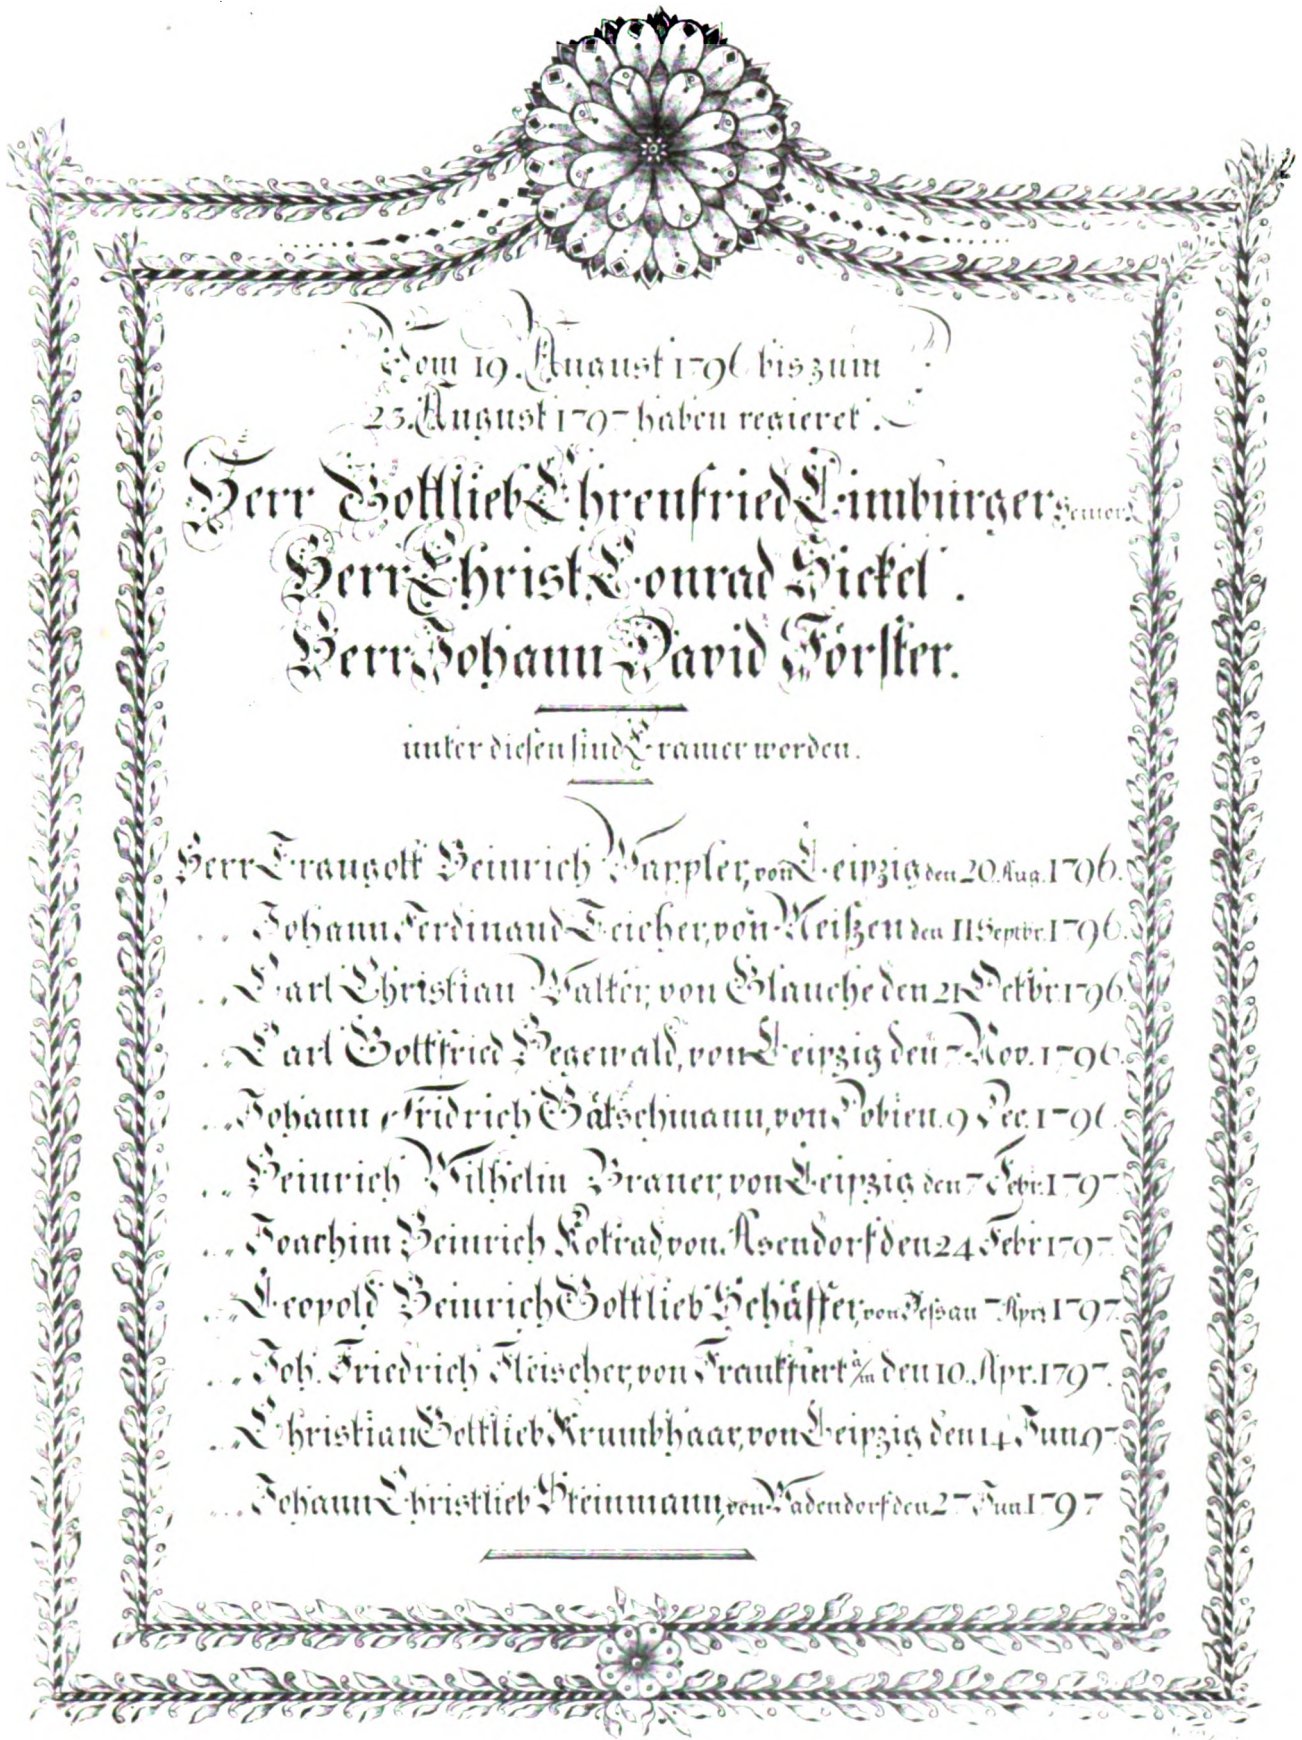 Vom 19. August 1796 bis zum
23. August 1797 haben regieret.
Herr Gottlieb Ehrenfried Limburger Senior.
Herr Christ. Conrad Sickel.
Herr Johann David Förster.
unter diesen sind Cramer worden.
Herr Traugott Heinrich Wappler, von Leipzig den 20. Aug. 1796.
„ Johann Ferdinand Teicher, von Meißen den 11 Septbr. 1796.
„ Carl Christian Walter, von Glauche den 21 Octbr. 1796.
„ Carl Gottfried Hegewald, von Leipzig den 7 Nov. 1796.
„ Johann Fridrich Gätschmann, von Dobien. 9 Dec. 1796.
„ Heinrich Wilhelm Brauer, von Leipzig den 7 Febr. 1797
„ Joachim Heinrich von Asendorf den 24 Febr 1797.
„ Leopold Heinrich Gottlieb Schäffer, von Dessau 7 Apr. 1797.
„ Joh. Friedrich Fleischer, von Frankfurt a/m den 10. Apr. 1797.
„ Christian Gottlieb Krumbhaar, von Leipzig den 14 Jun 97
„ Johann Christlieb Steinmann, von Wadendorf den 27 Jun 1797